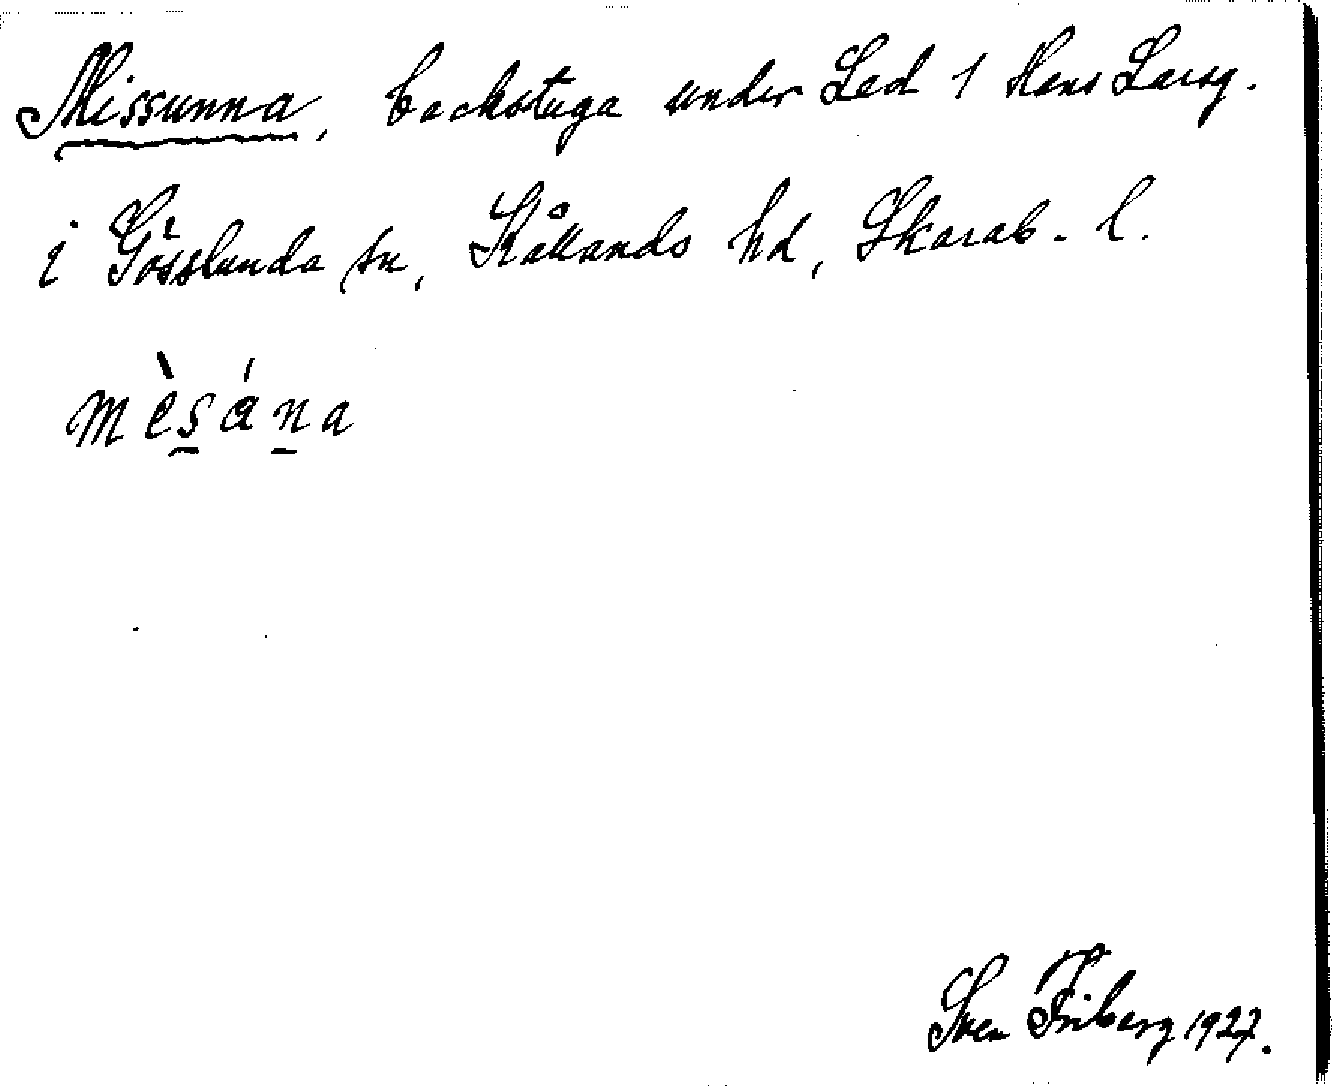 Missunna, backstuga under Led 1 Hans Larsg.
i Gösslunda sn, Kållands hd, Skarab. l.
mèsána
Sven Friberg 1927.